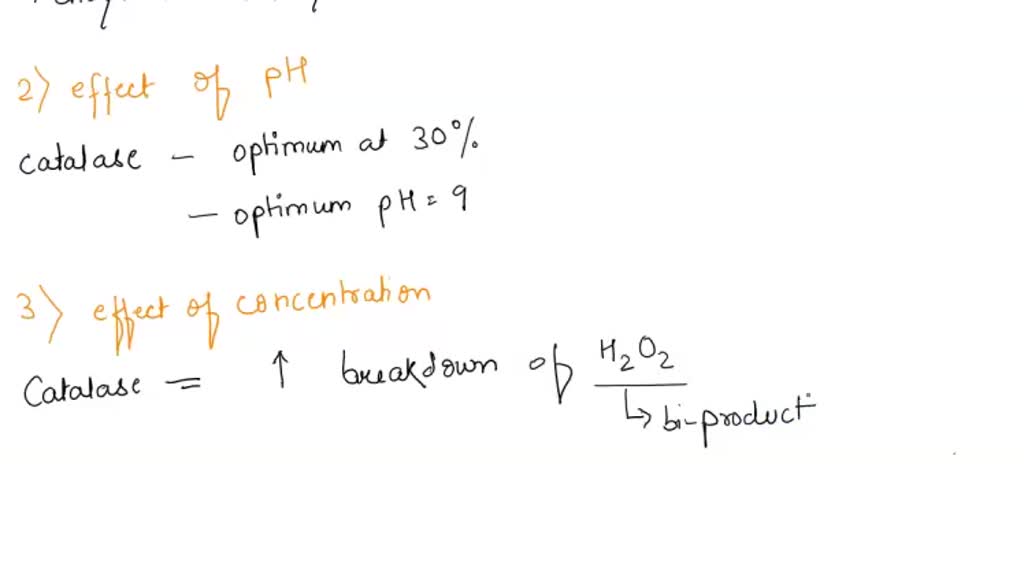 2) effect of pH
catalase – optimum at 30%
– optimum pH = 9
3) effect of concentration
Catalase = ↑ breakdown of H₂O₂
↳ bi-product